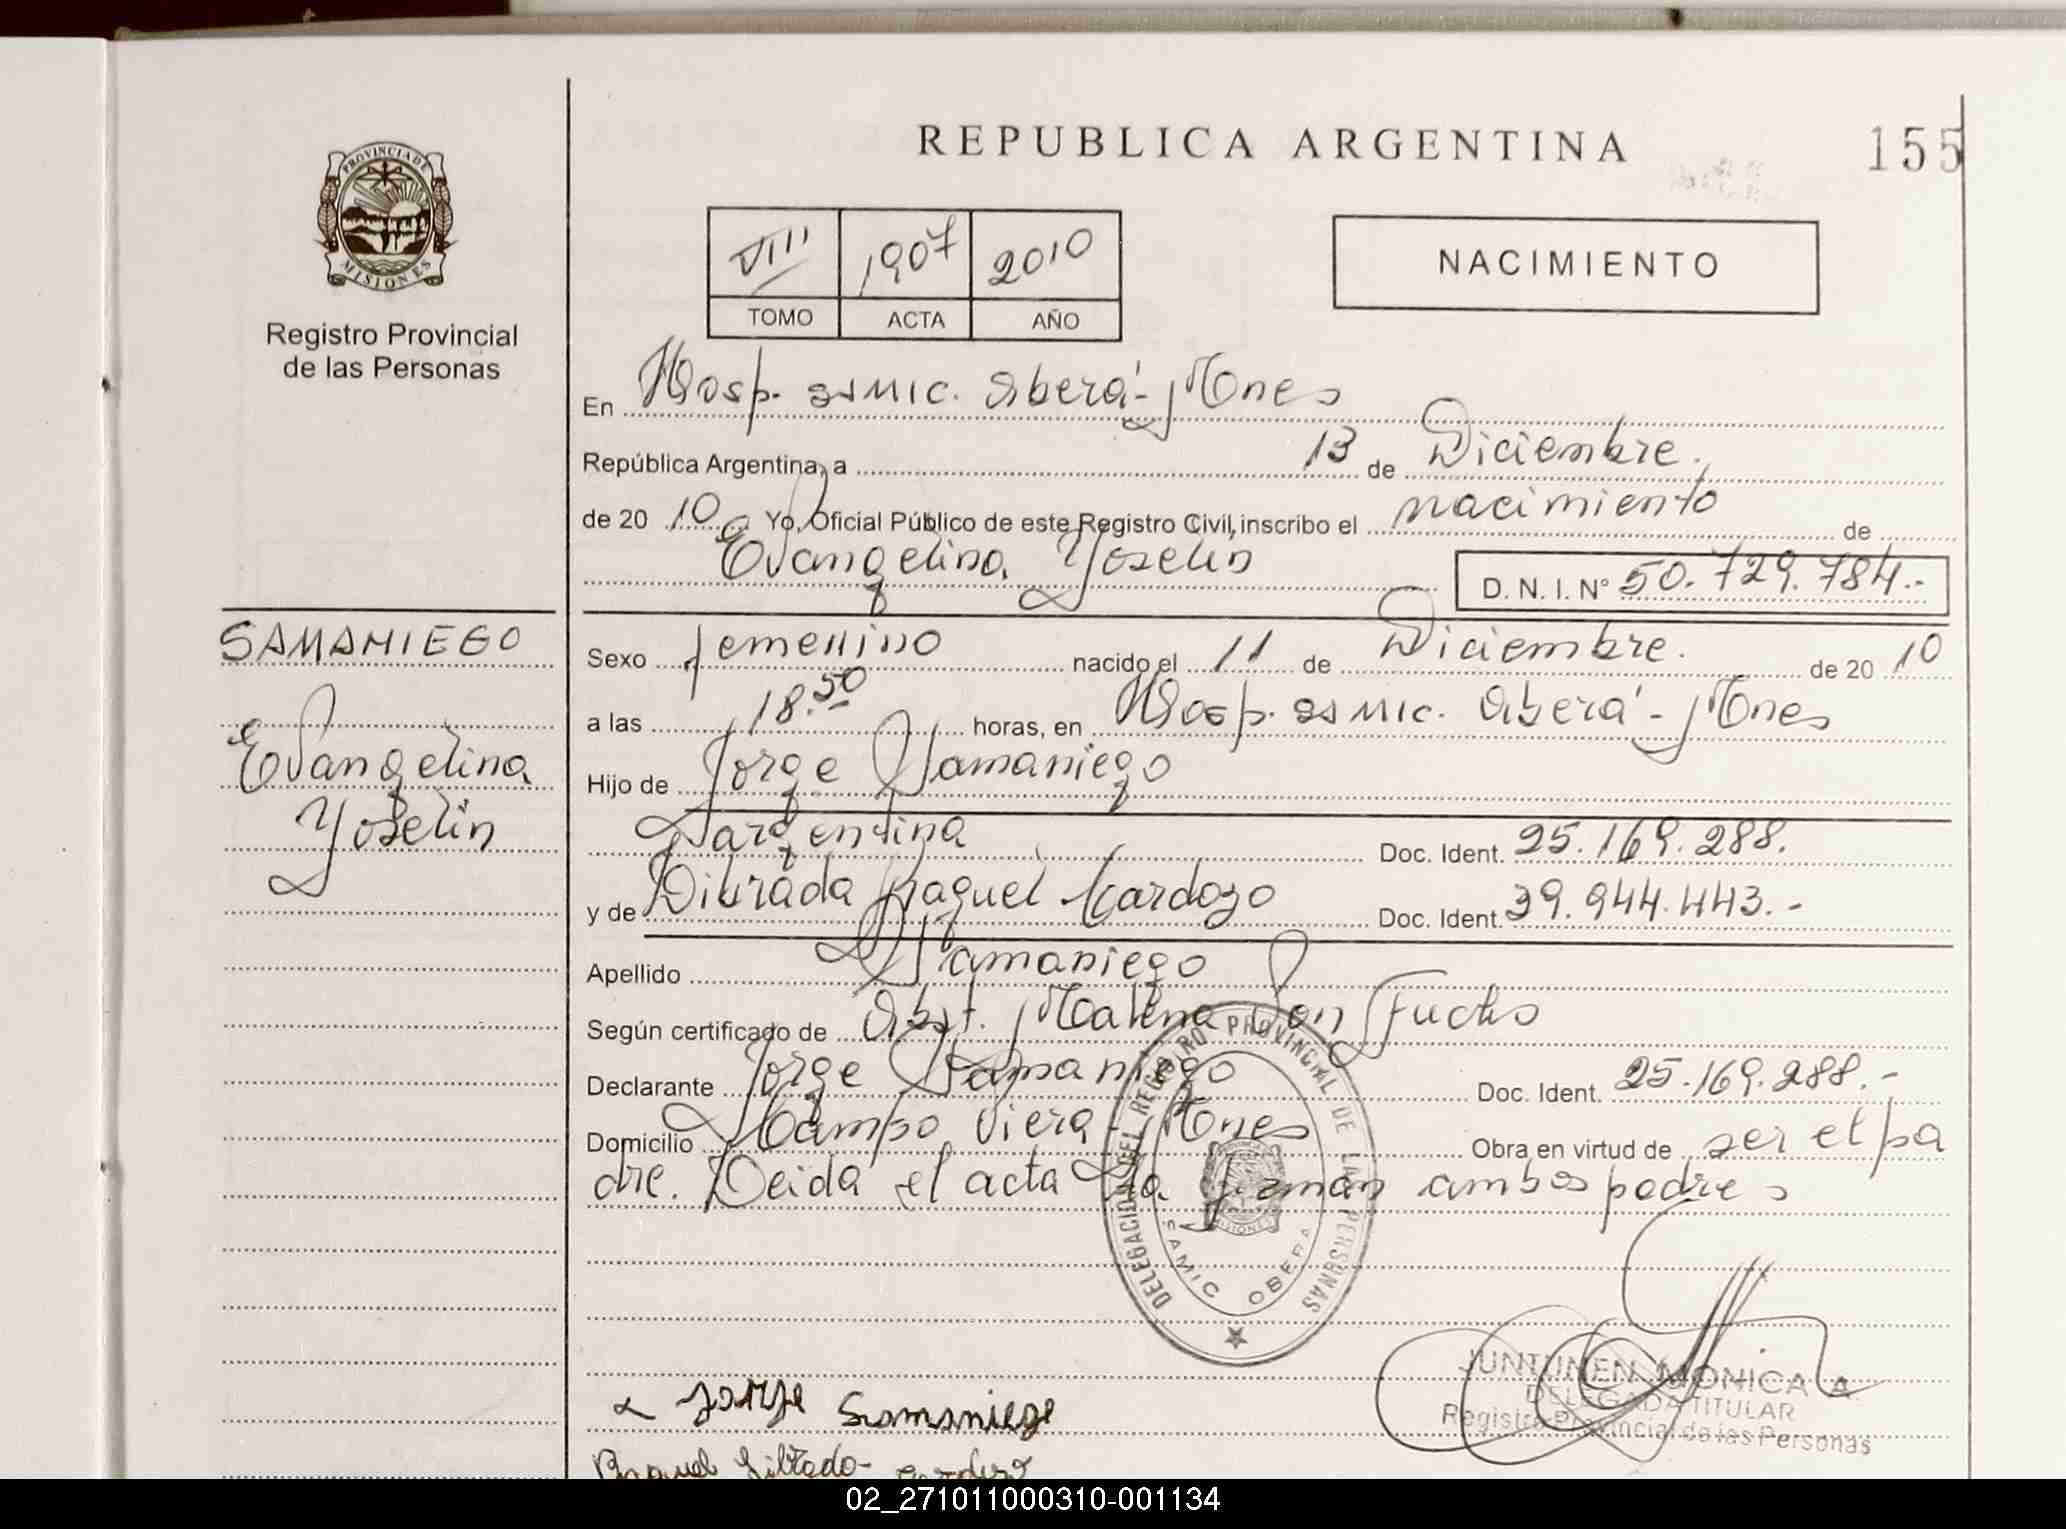 REPUBLICA ARGENTINA
155
PROVINCIA DE
MISIONES
Registro Provincial
de las Personas
VIII 1907 2010
TOMO ACTA AÑO
NACIMIENTO
En Hosp. SAMIC. Oberá - Mnes
República Argentina, a 13 de Diciembre.
de 20 10 Yo, Oficial Público de este Registro Civil, inscribo el nacimiento de
Evangelina Yoselin
D. N. I. Nº 50.729.784.-
SAMANIEGO
Evangelina
Yoselin
Sexo femenino nacido el 11 de Diciembre. de 20 10
a las 18.50 horas, en Hosp. SAMIC. Oberá - Mnes
Hijo de Jorge Samaniego
argentina Doc. Ident. 25.169.288.
y de Librada Raquel Cardozo Doc. Ident. 39.944.443.-
Apellido Samaniego
Según certificado de Obst. Malena Von Fuchs
Declarante Jorge Samaniego Doc. Ident. 25.169.288.-
Domicilio Campo Viera - Mnes Obra en virtud de ser el pa
dre. Leida el acta la firman ambos padres
DELEGACION DEL REGISTRO PROVINCIAL DE LAS PERSONAS
MISIONES
SAMIC OBERA
JUNTUNEN MONICA A
DELEGADA TITULAR
Registro Provincial de las Personas
Jorge Samaniego
Raquel Librada - Cardozo
02_271011000310-001134